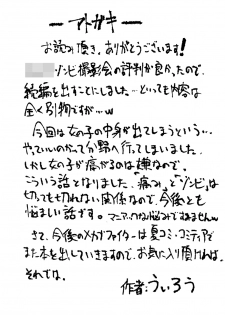 ーアトガキー
お読み頂き、ありがとうございます!
ゾンビ撮影会の評判が良かったので、
続編を出すことにしました…といっても内容は
全く別物ですが…w
今回は女の子の中身が出てしまうという…
やっていいのだか分野へ行ってしまいました。
しかし女の子が痛がるのは嫌なので、
こういう話となりました。「痛み」と「ゾンビ」は
切っても切れない関係なので、今後とも
悩ましい話です。マニアックな悩みですみませんw
さて、今後のメカファイターは夏コミ・コミティアで
また本を出していきますので、お気に入り頂ければ。
それでは。
作者:ういろう